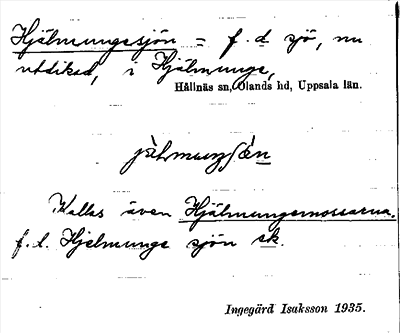 Hjälmungesjön = f. d sjö, nu
utdikad, i Hjälmunge,
Hållnäs sn, Olands hd, Uppsala län.
Kallas även Hjälmungemossarna.
f. l. Hjelmunge sjön ek.
Ingegärd Isaksson 1935.